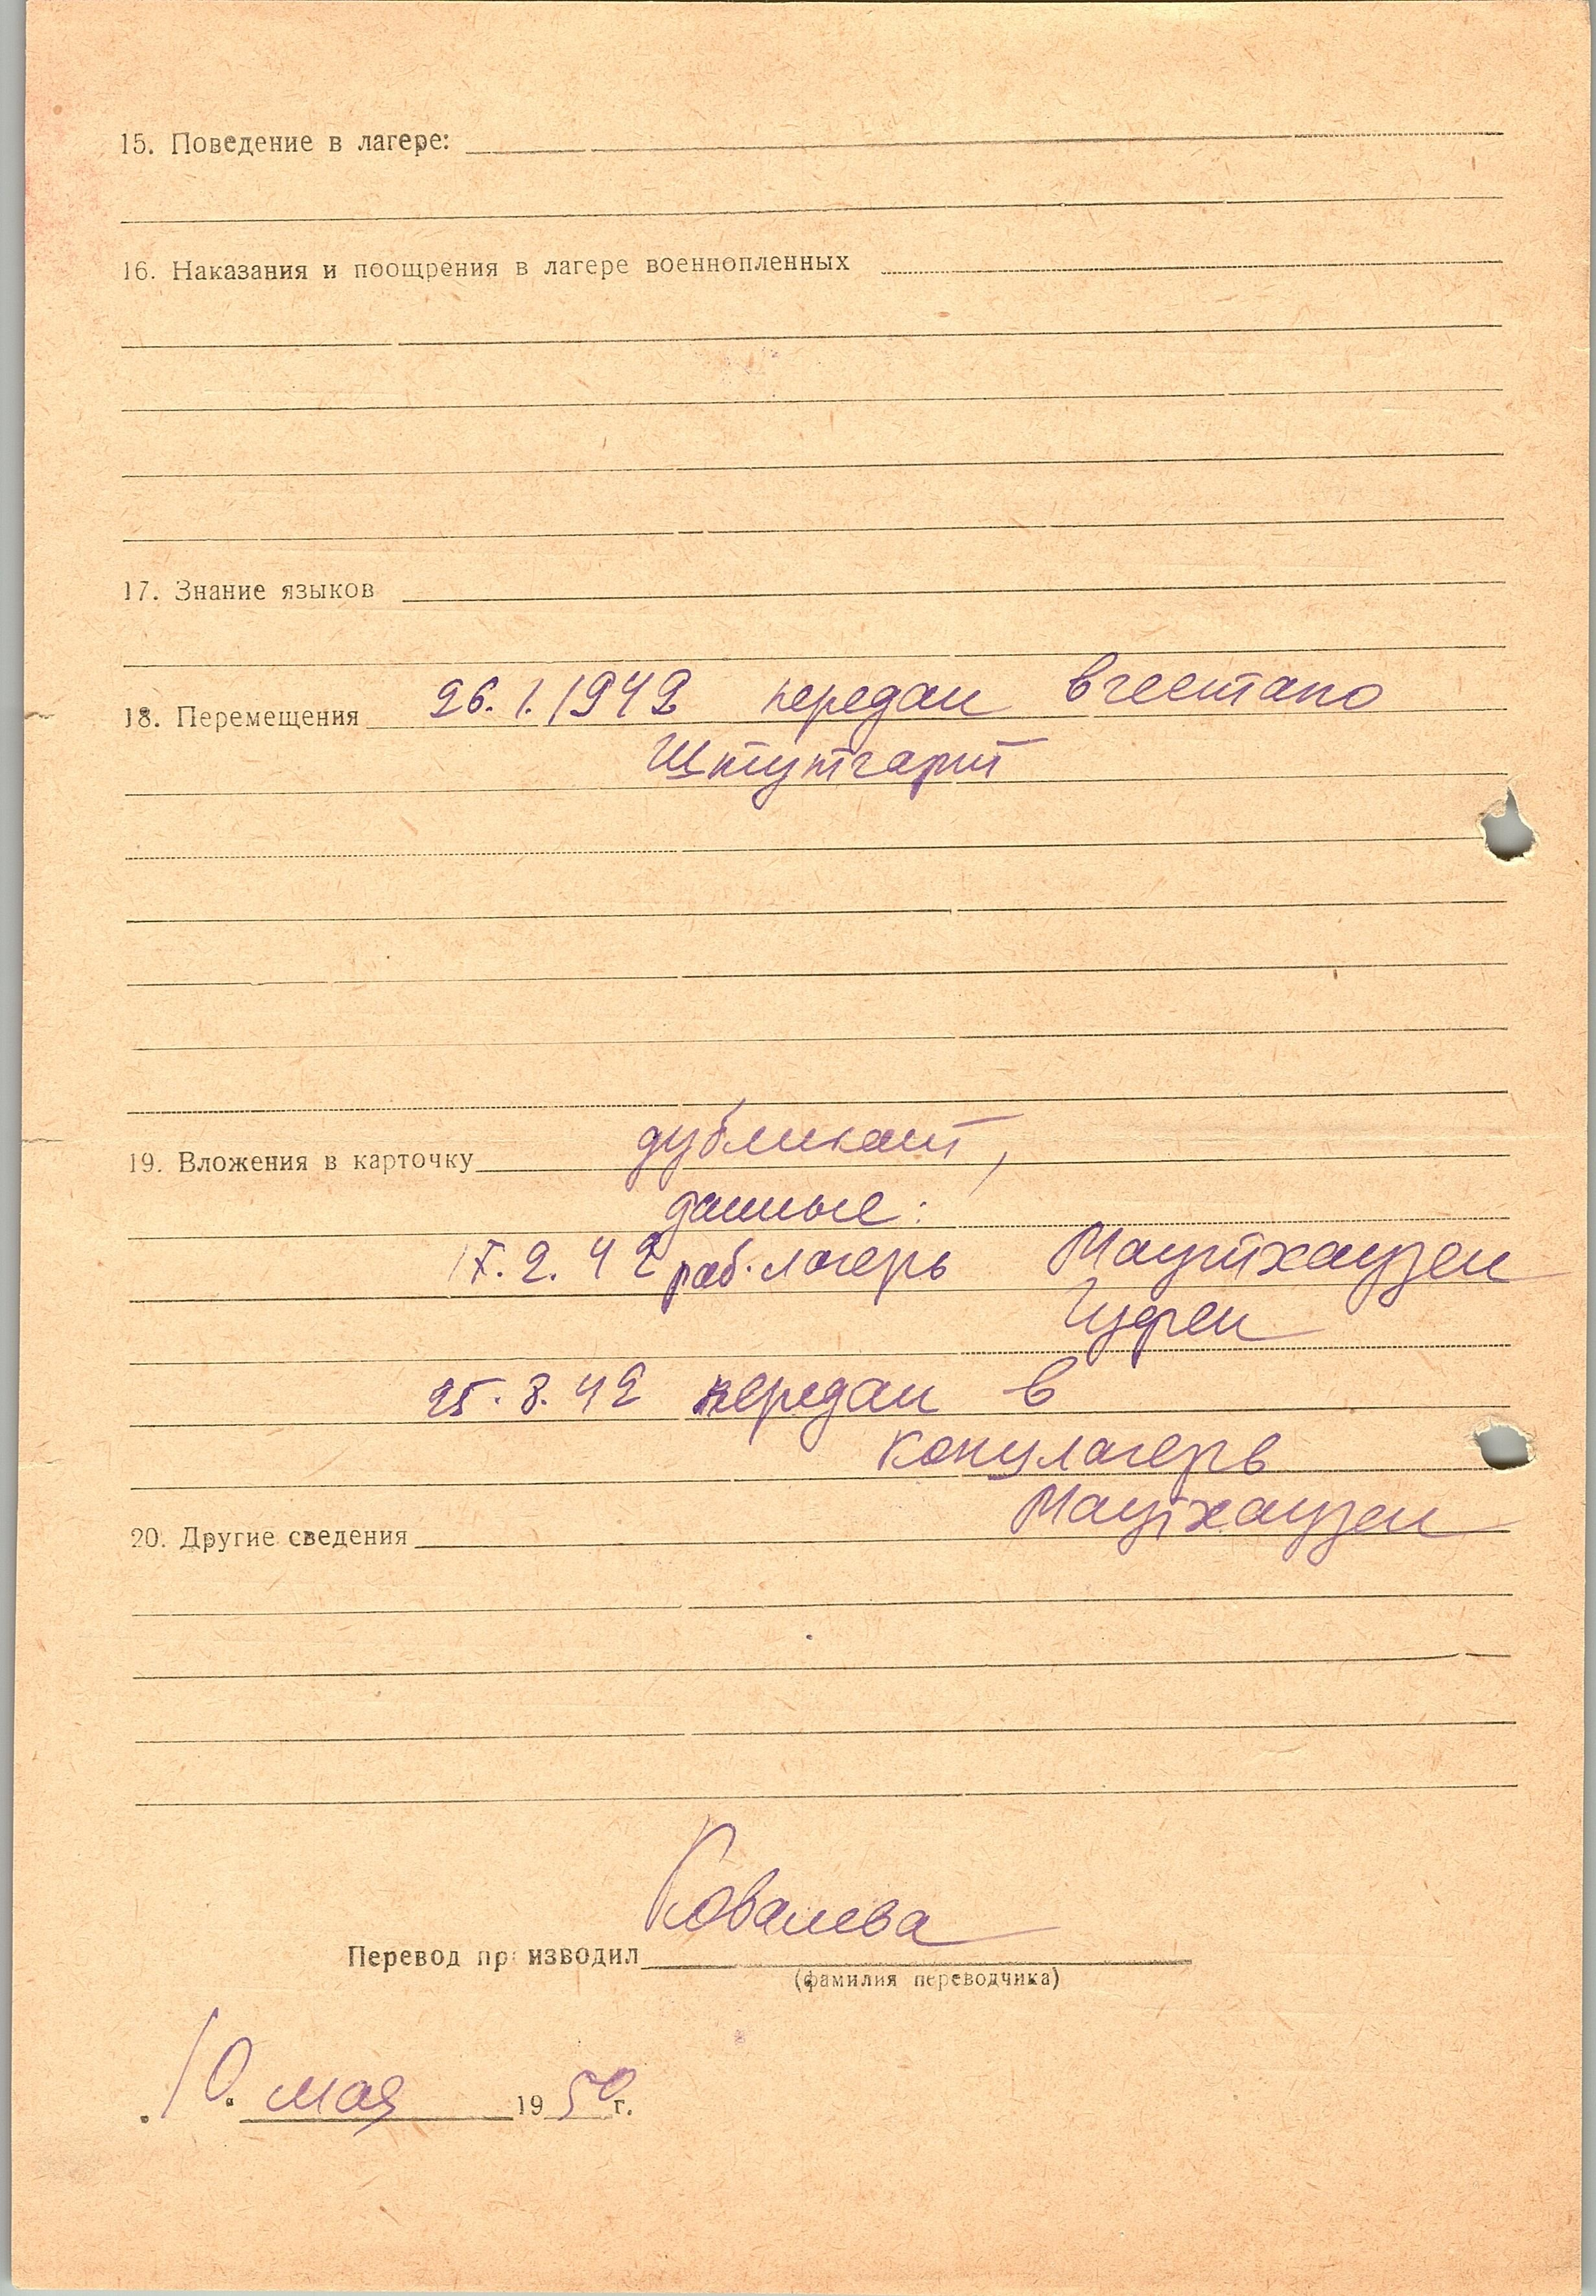 15. Поведение в лагере:
16. Наказания и поощрения в лагере военнопленных
17. Знание языков
18. Перемещения 26.1.1942 передан в гестапо
Штутгарт
19. Вложения в карточку дубликат,
данные:
17.2.42 раб. лагерь Маутхаузен
Гузен
25.8.42 передан в
концлагерь
Маутхаузен
20. Другие сведения
Ковалева
Перевод производил
(фамилия переводчика)
10. мая 1950 г.